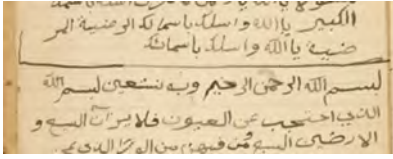 الكبير يا الله واسلك باسمائك الوضيية المر
ضيية يا الله واسلك باسمائك
بسم الله الرحمن الرحيم وبه نستعين بسم الله
الذي احتجب عن العيون فلا يراه السبع و
الارضين السبع ومن فيهن من الورا الذي